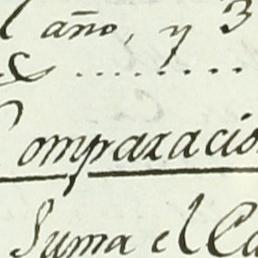 l año, y 3
& ........
Comparacio
Suma el Ca